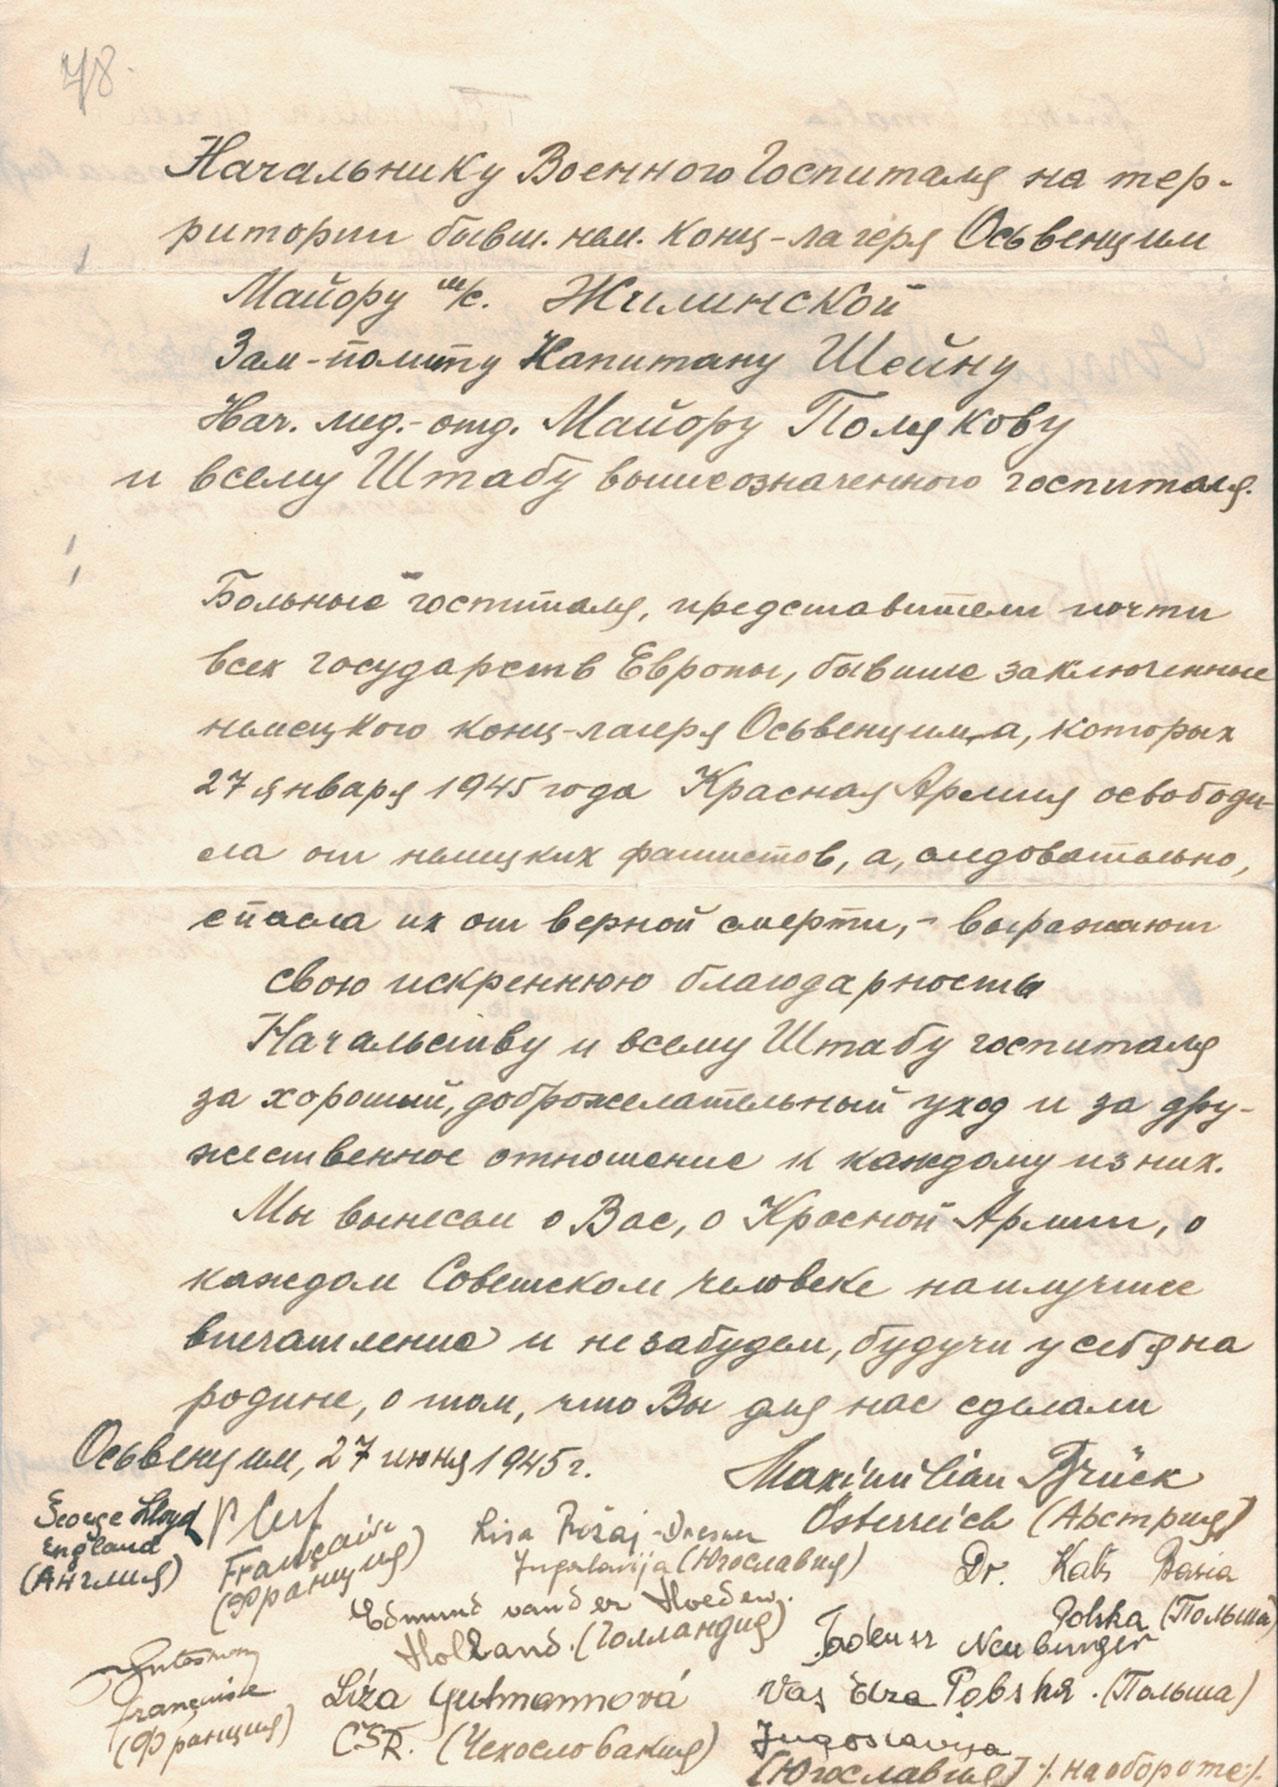 78.
Начальнику Военного Госпиталя на тер-
ритории бывш. нем. конц-лагеря Осьвенцим
Майору м/с. Жилинской
Зам-политу Капитану Шейну
Нач. мед.-отд. Майору Полякову
и всему Штабу вышеозначенного госпиталя.
Больные госпиталя, представители почти
всех государств Европы, бывшие заключенные
немецкого конц-лагеря Осьвенцим,а, которых
27 января 1945 года Красная Армия освободи-
ла от немецких фашистов, а, следовательно,
спасла их от верной смерти, - выражают
свою искреннюю благодарность
Начальству и всему Штабу госпиталя
за хороший, доброжелательный уход и за дру-
жественное отношение к каждому из них.
Мы вынесем о Вас, о Красной Армии, о
каждом Советском человеке наилучшее
впечатление и не забудем, будучи у себя на
родине, о том, что Вы для нас сделали
Осьвенцим, 27 июня 1945 г.
Maximilian Brück
Österreich (Австрия)
George Lloyd
England
(Англия)
Française
(Франция)
Lisa
Jugolavija (Югославия)
Dr. Katz Basia
Polska (Польша)
Edmund van der Hoeden.
Holland. (Голландия)
Tadeusz Neuburger
Polska. (Польша)
française
(Франция)
Líza Gutmannová
ČSR. (Чехословакия)
Jugoslavija
(Югославия) ·/. на обороте ·/.